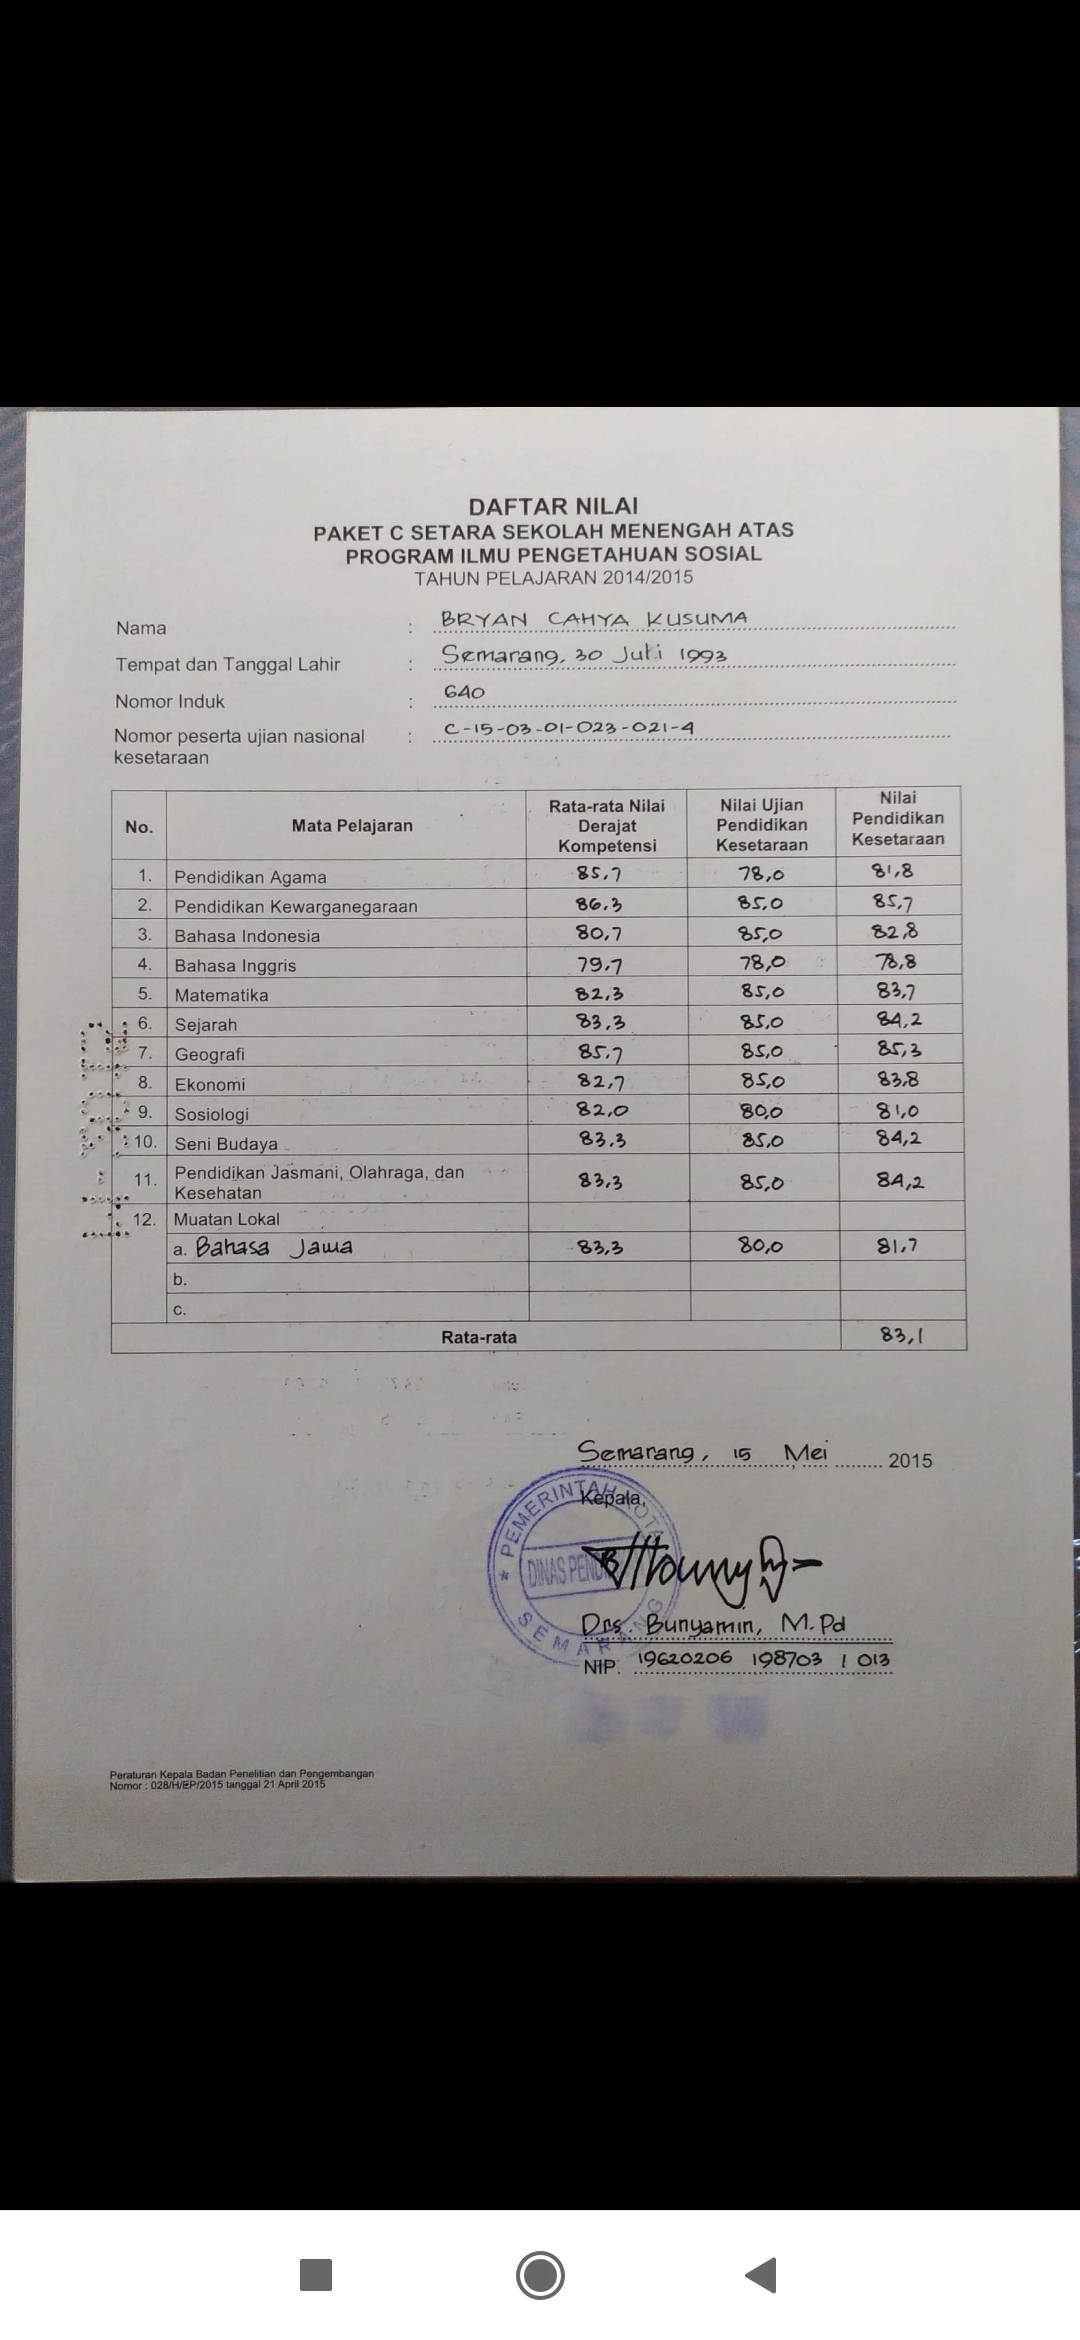 DAFTAR NILAI
PAKET C SETARA SEKOLAH MENENGAH ATAS
PROGRAM ILMU PENGETAHUAN SOSIAL
TAHUN PELAJARAN 2014/2015
Nama : BRYAN CAHYA KUSUMA
Tempat dan Tanggal Lahir : Semarang, 30 Juli 1993
Nomor Induk : 640
Nomor peserta ujian nasional kesetaraan : C-15-03-01-023-021-4
No. Mata Pelajaran Rata-rata Nilai Derajat Kompetensi Nilai Ujian Pendidikan Kesetaraan Nilai Pendidikan Kesetaraan
1. Pendidikan Agama 85,7 78,0 81,8
2. Pendidikan Kewarganegaraan 86,3 85,0 85,7
3. Bahasa Indonesia 80,7 85,0 82,8
4. Bahasa Inggris 79,7 78,0 78,8
5. Matematika 82,3 85,0 83,7
6. Sejarah 83,3 85,0 84,2
7. Geografi 85,7 85,0 85,3
8. Ekonomi 82,7 85,0 83,8
9. Sosiologi 82,0 80,0 81,0
10. Seni Budaya 83,3 85,0 84,2
11. Pendidikan Jasmani, Olahraga, dan Kesehatan 83,3 85,0 84,2
12. Muatan Lokal
a. Bahasa Jawa 83,3 80,0 81,7
b.
c.
Rata-rata 83,1
Semarang, 15 Mei 2015
Kepala,
PEMERINTAH KOTA
DINAS
SEMARANG
Drs. Bunyamin, M.Pd
NIP. 19620206 198703 1 013
Peraturan Kepala Badan Penelitian dan Pengembangan
Nomor : 028/H/EP/2015 tanggal 21 April 2015